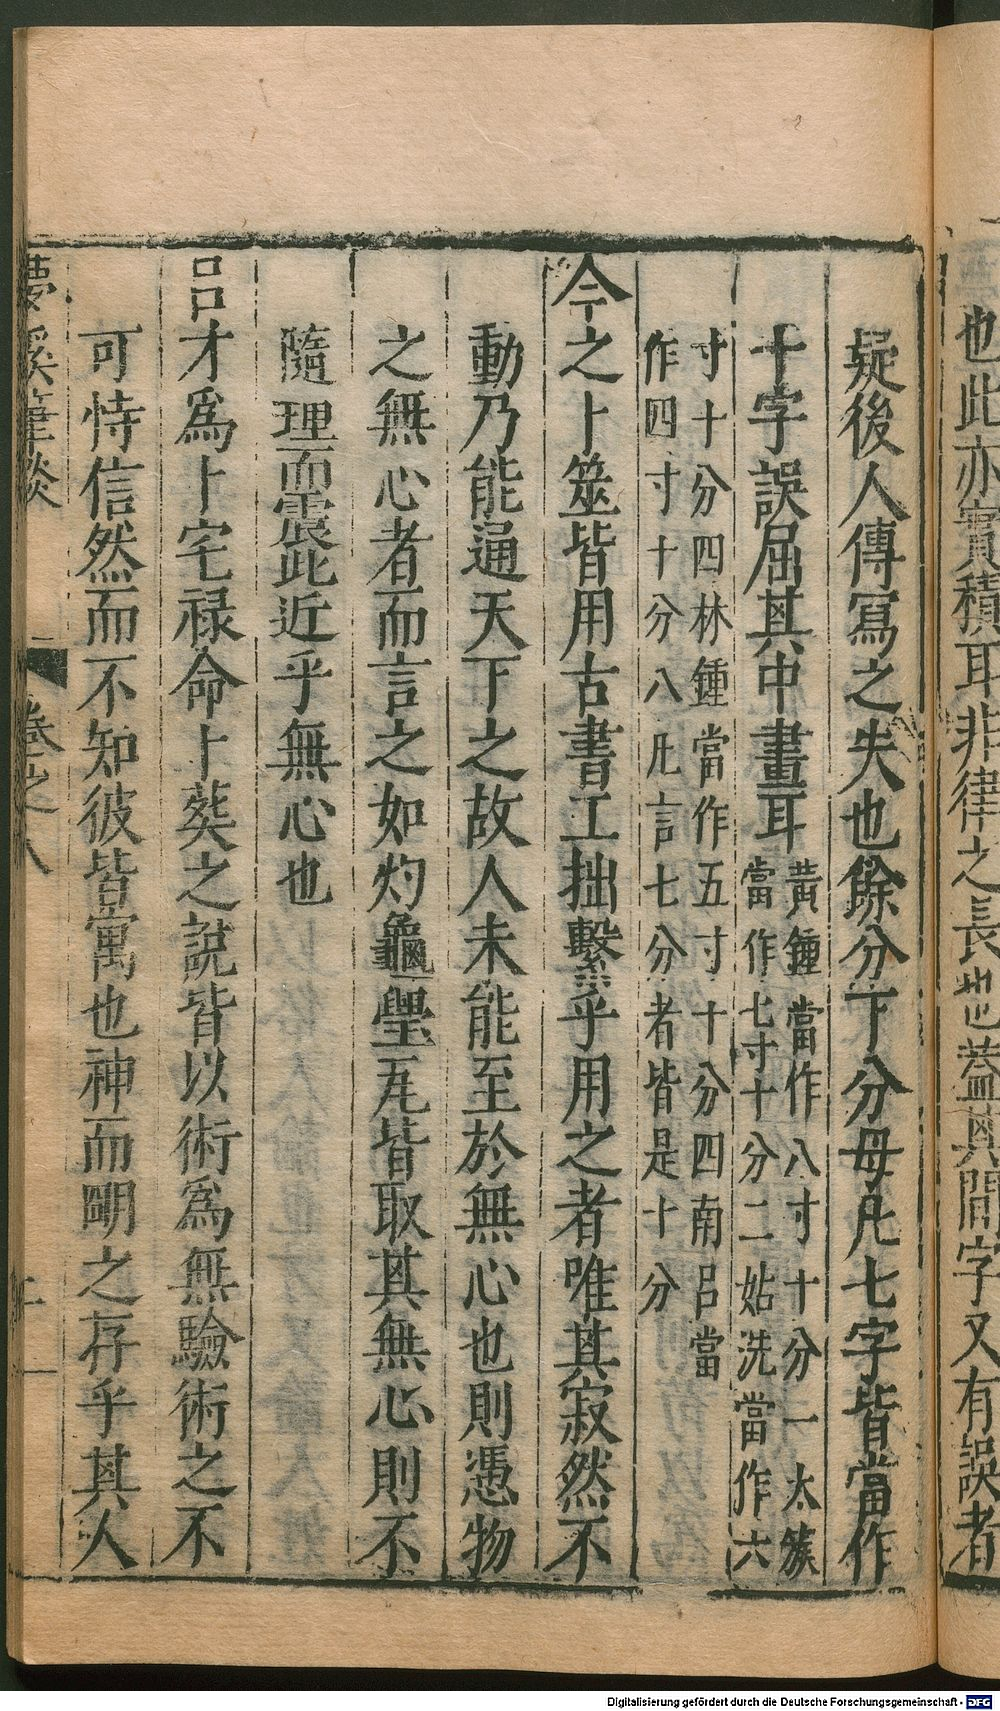 也此亦實積耳非律之長也蓋其間字又有誤者
疑後人傳寫之失也餘分下分母凡七字皆當作
十字誤屈其中畫耳
黃鍾當作八寸十分一太簇
當作七寸十分二姑洗當作六
寸十分四林鍾當作五寸十分四南呂當
作四寸十分八凡言七分者皆是十分
今之卜筮皆用古書工拙繫乎用之者唯其寂然不
動乃能通天下之故人未能至於無心也則憑物
之無心者而言之如灼龜璺瓦皆取其無心則不
隨理而震此近乎無心也
呂才爲卜宅禄命卜葬之說皆以術爲無驗術之不
可恃信然而不知彼皆寓也神而明之存乎其人
夢溪筆談
卷之八
Digitalisierung gefördert durch die Deutsche Forschungsgemeinschaft - DFG